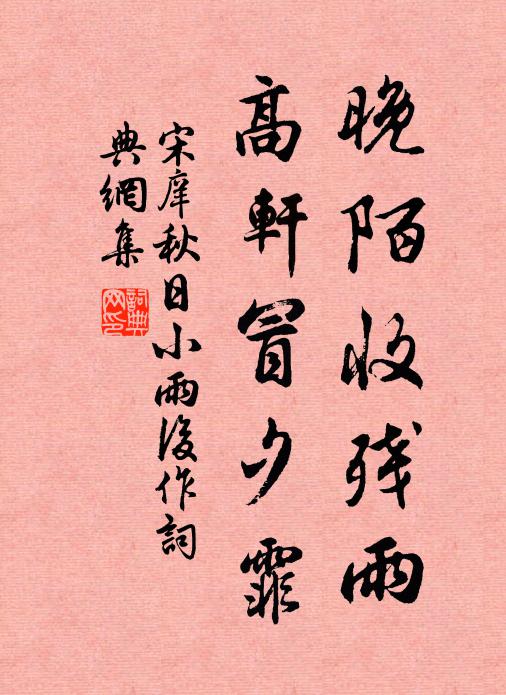 晚陌收残雨
高軒冒夕霏
宋庠秋日小雨後作詞
典網集
詞典網印